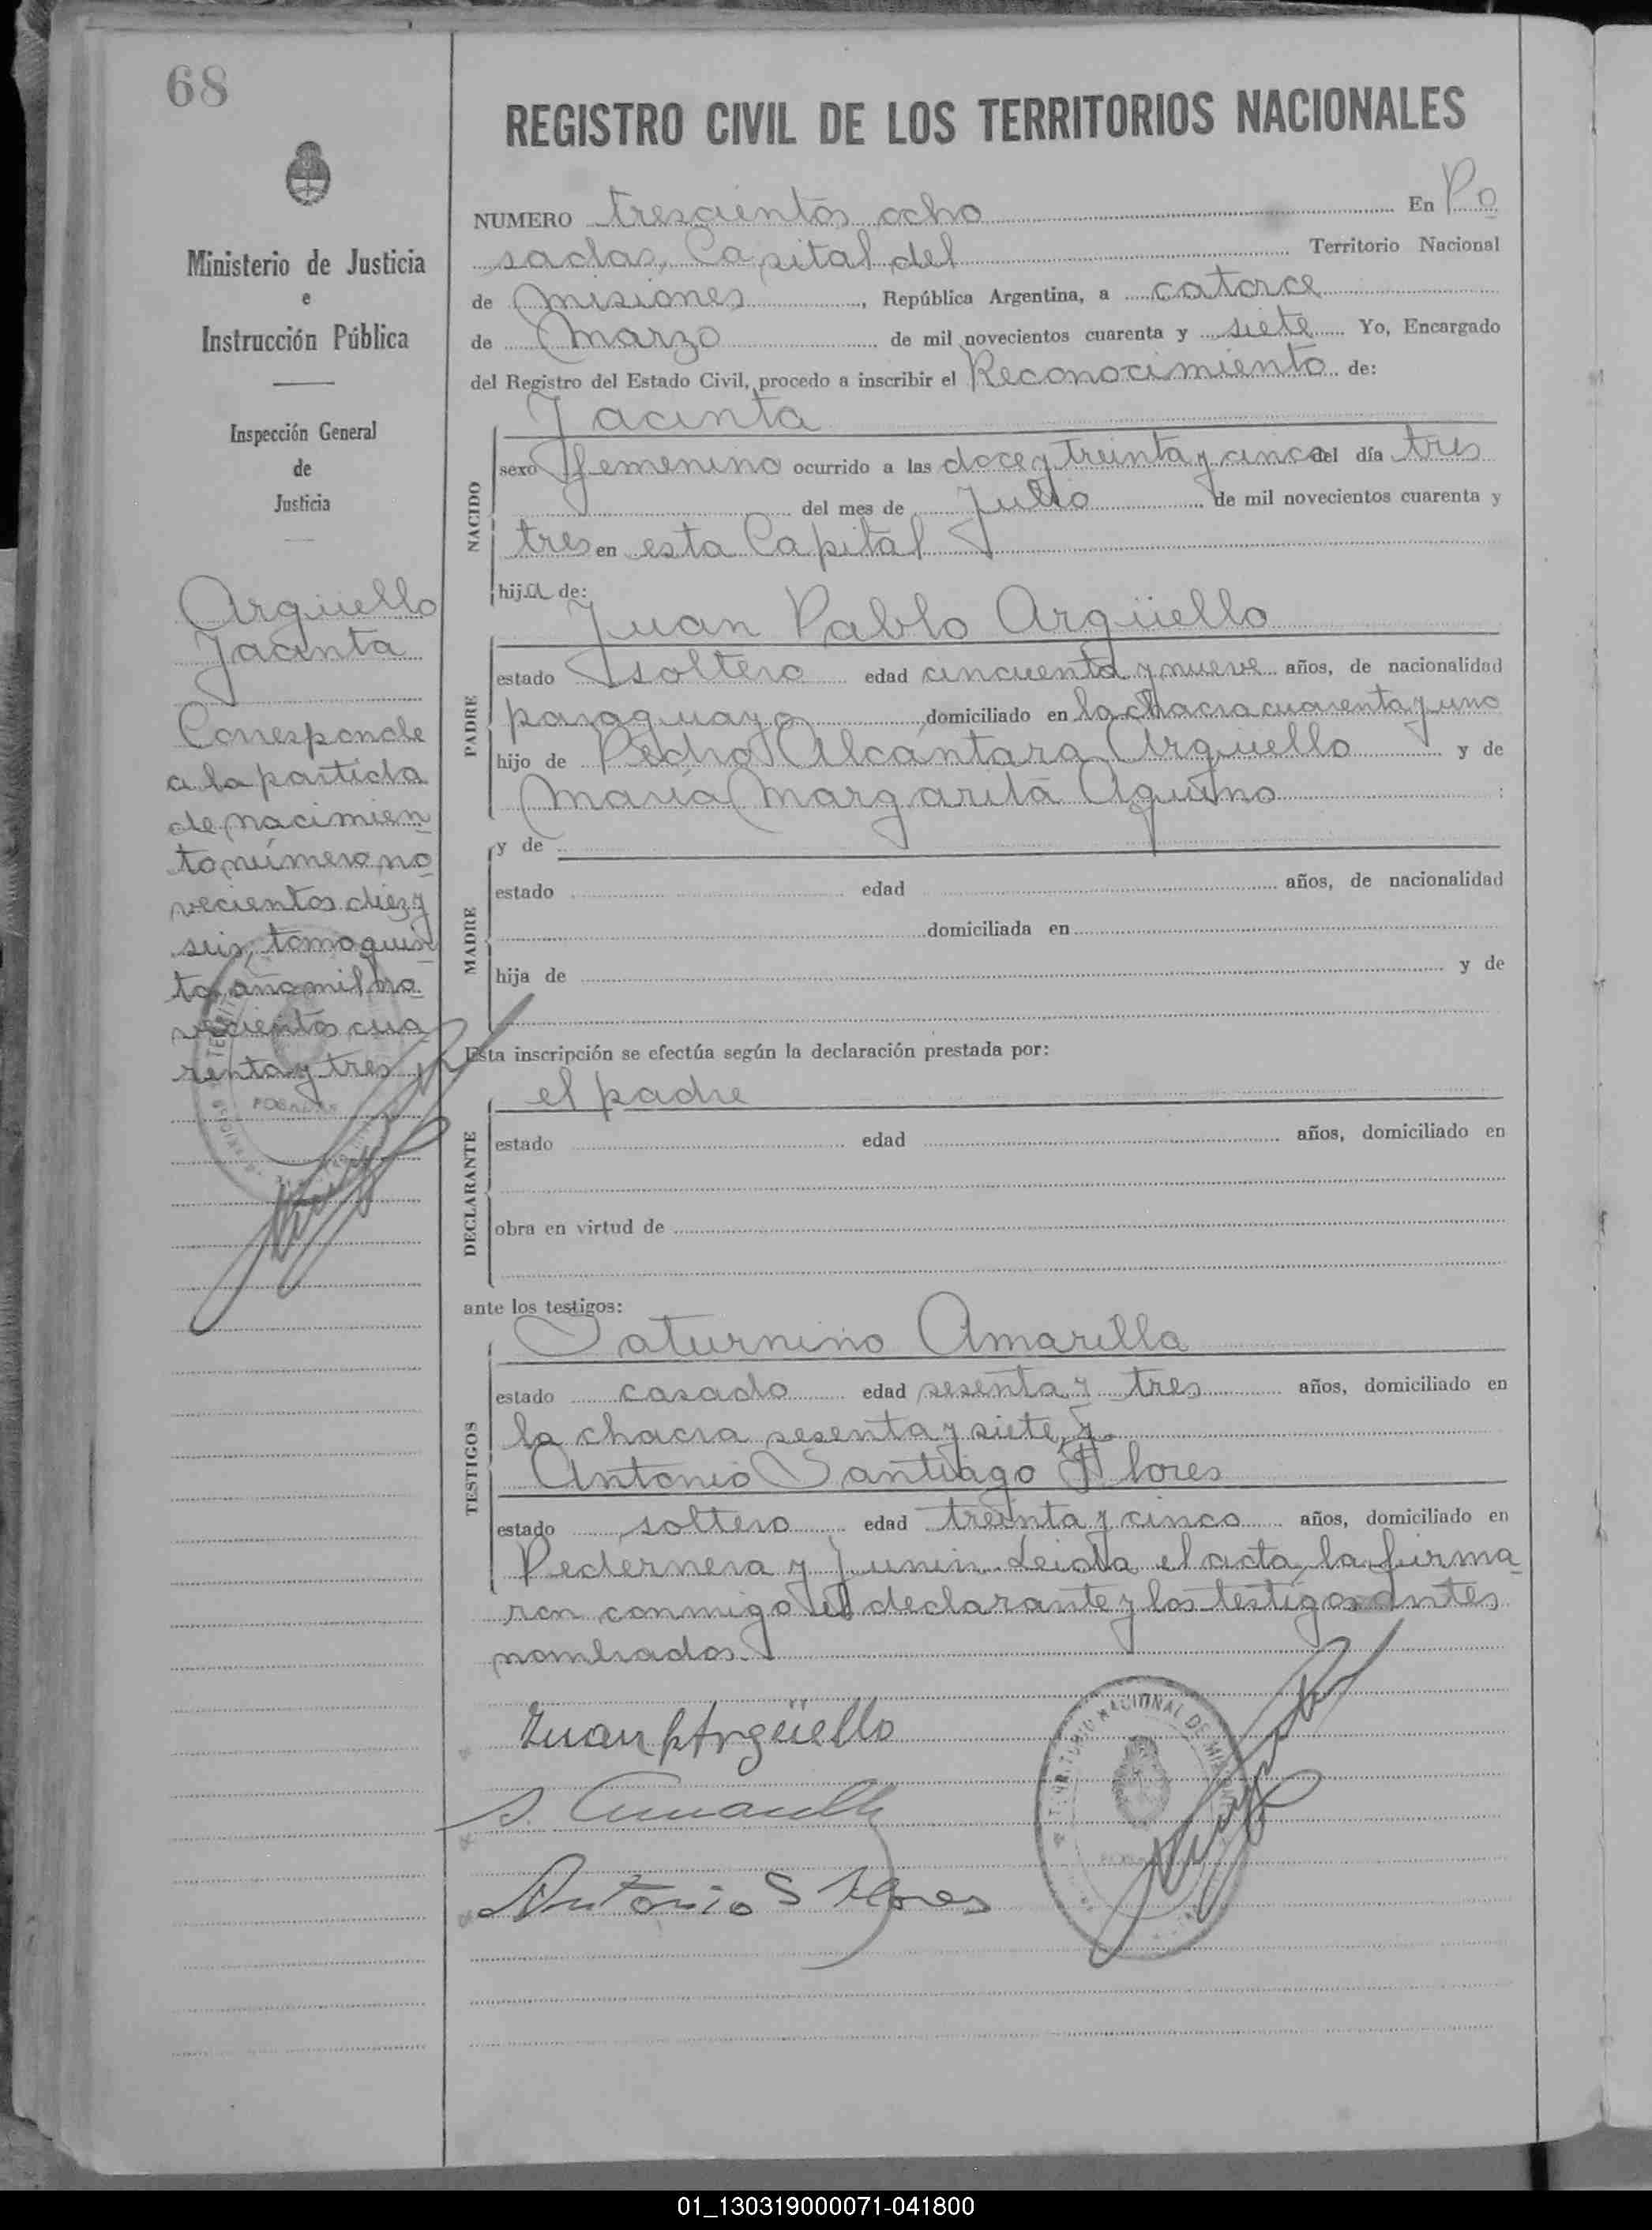 68
REGISTRO CIVIL DE LOS TERRITORIOS NACIONALES
Ministerio de Justicia
e
Instrucción Pública
Inspección General
de
Justicia
Argüello
Jacinta
Corresponde
a la partida
de nacimien
to número no
vecientos diez y
seis, tomo quin
to, año mil no
vecientos cua
renta y tres
POSADAS
NUMERO trescientos ocho En Po
sadas, Capital del Territorio Nacional
de Misiones, República Argentina, a catorce
de Marzo de mil novecientos cuarenta y siete Yo, Encargado
del Registro del Estado Civil, procedo a inscribir el Reconocimiento de:
Jacinta
NACIDO
sexo femenino ocurrido a las doce y treinta y cinco del día tres
del mes de Julio de mil novecientos cuarenta y
tres en esta Capital
hija de:
Juan Pablo Argüello
PADRE
estado soltero edad cincuenta y nueve años, de nacionalidad
paraguaya domiciliado en la chacra cuarenta y uno
hijo de Pedro Alcántara Argüello y de
María Margarita Aquino
y de
MADRE
estado edad años, de nacionalidad
domiciliada en
hija de y de
Esta inscripción se efectúa según la declaración prestada por:
el padre
DECLARANTE
estado edad años, domiciliado en
obra en virtud de
ante los testigos:
Saturnino Amarilla
TESTIGOS
estado casado edad sesenta y tres años, domiciliado en
la chacra sesenta y siete, y
Antonio Santiago Flores
estado soltero edad treinta y cinco años, domiciliado en
Pedernera y Junín. Leida el acta, la firma
ron conmigo el declarante y los testigos antes
nombrados.
Juan P Argüello
S. Amarilla
Antonio S Flores
TERRITORIO NACIONAL DE MISIONES
01_130319000071-041800